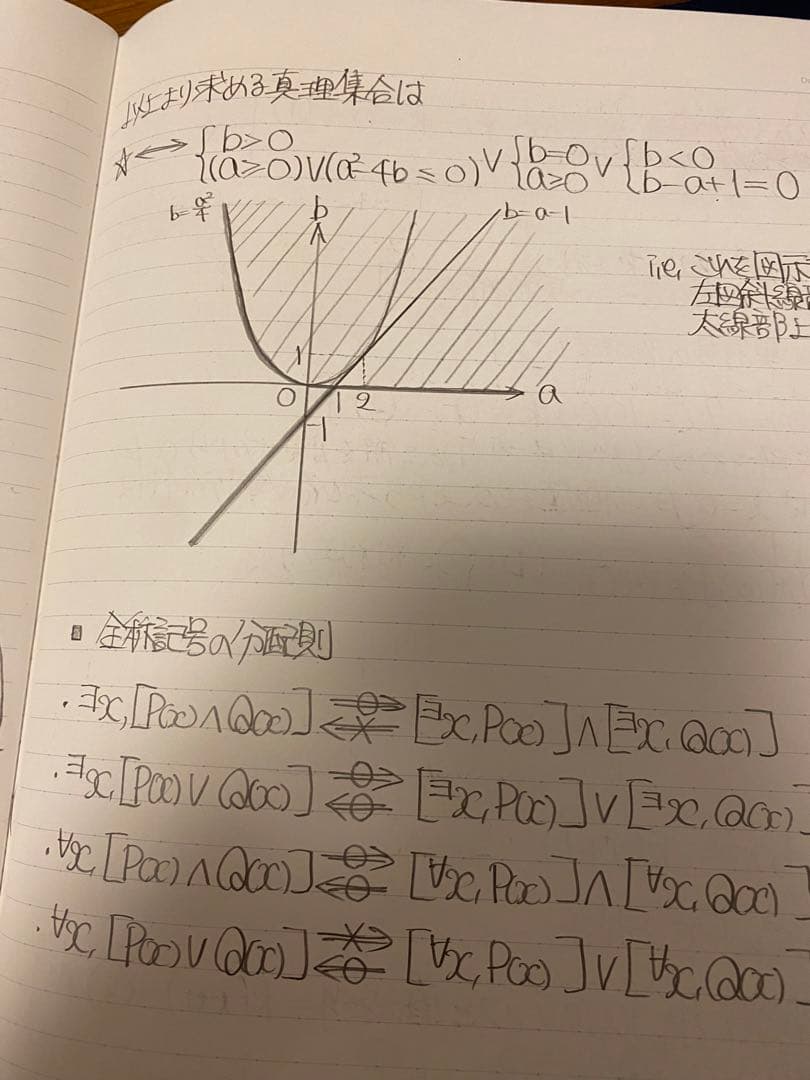 以上より求める真理集合は
☆⟷{b>0
(a≥0)∨(a²-4b≤0)}∨{b=0
a≥0}∨{b<0
b-a+1=0
b=a²/4
b
b=a-1
i,e, これを図示
左図斜線部
太線部上
1
0
1
2
a
-1
全称記号の分配則
・∃x,[P(x)∧Q(x)] ⇄ [∃x,P(x)]∧[∃x,Q(x)]
・∃x,[P(x)∨Q(x)] ⇄ [∃x,P(x)]∨[∃x,Q(x)]
・∀x,[P(x)∧Q(x)] ⇄ [∀x,P(x)]∧[∀x,Q(x)]
・∀x,[P(x)∨Q(x)] ⇄ [∀x,P(x)]∨[∀x,Q(x)]